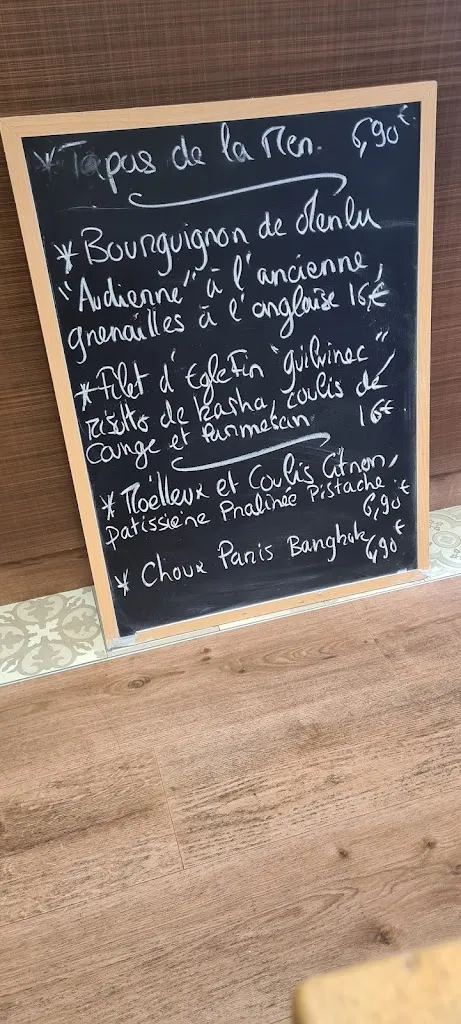 * Tapas de la Mer. 6,90€
* Bourguignon de Merlu
"Audienne" à l'ancienne,
grenailles à l'anglaise 16€
* Filet d'Eglefin "guilvinec"
risotto de kasha, coulis de
Courge et Parmesan 16€
* Moëlleux et Coulis Citron,
patissiene Pralinée Pistache.
6,90€
* Choux Paris Bangkok 6,90€